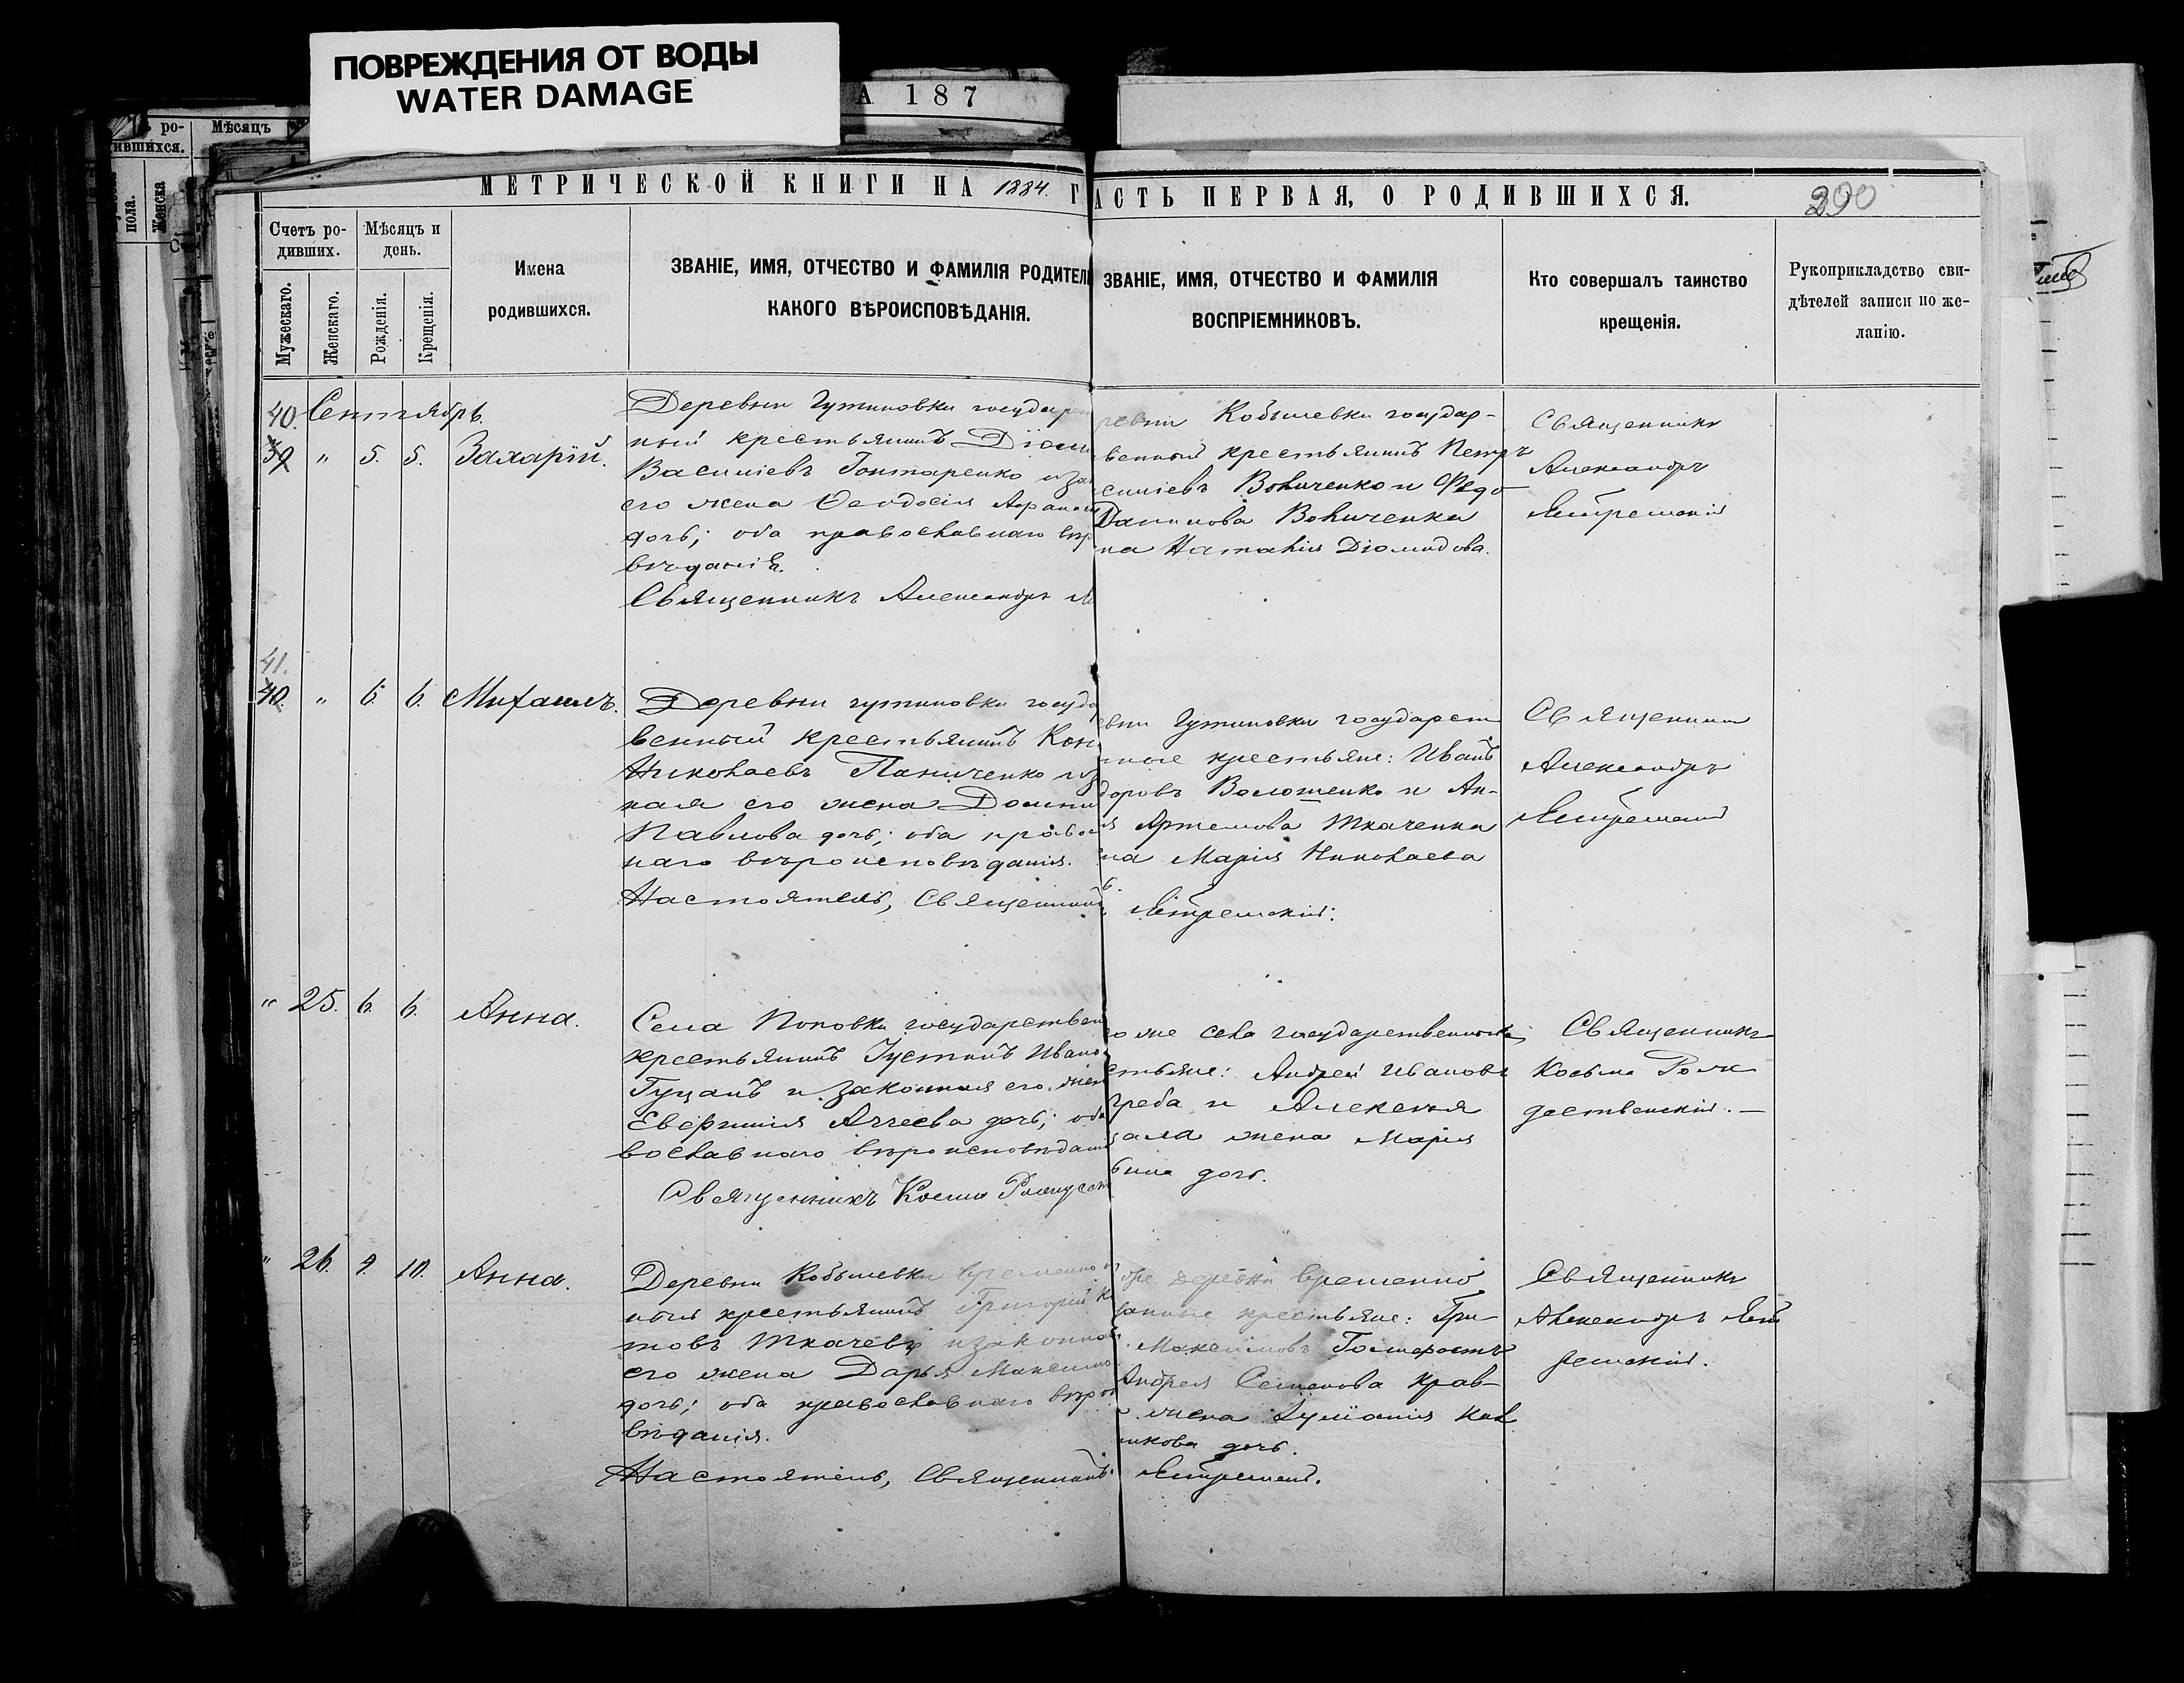 ПОВРЕЖДЕНИЯ ОТ ВОДЫ
WATER DAMAGE
А 187
ро-
ившихся.
Мѣсяцъ
пола.
Женска
МЕТРИЧЕСКОЙ КНИГИ НА 1884. Г
АСТЬ ПЕРВАЯ, О РОДИВШИХСЯ.
290
Счетъ ро-
дивших.
Мужескаго.
Женскаго.
Мѣсяцъ и
день.
Рожденія.
Крещенія.
Имена
родившихся.
ЗВАНІЕ, ИМЯ, ОТЧЕСТВО И ФАМИЛІЯ РОДИТЕЛ
КАКОГО ВѢРОИСПОВѢДАНІЯ.
ЗВАНІЕ, ИМЯ, ОТЧЕСТВО И ФАМИЛІЯ
ВОСПРІЕМНИКОВЪ.
Кто совершалъ таинство
крещенія.
Рукоприкладство сви-
дѣтелей записи по же-
ланію.
Сентябрь.
40.
39 " 5. 5. Захарій.
Деревни Гутниовки государ
ный крестьянинъ Діоми
Василіевъ Гонтаренко и за
его жена Ѳеодосія
дочь; оба православнаго вѣр
вѣданія.
Священникъ Александръ
ревни Кобылевки государ-
венный крестьянинъ Петръ
силіевъ Воличенко и Ѳедо
Данилова Воличенка
на Наталія Діомидова.
Священникъ
Александръ
41.
40. " 6. 6. Михаилъ.
Деревни гутниовки госуда
венный крестьянинъ Кон
Николаевъ Паниченко и з
ная его жена Домни
Павлова дочь; оба правос
наго вѣроисповѣданія.
Настоятель, Священникъ
евни Гутниовки государст
нные крестьяне: Иванъ
доровъ Волошенко и Ан-
я Артемова Ткаченка
на Марія Николаева
ь.
Священникъ
Александръ
" 25. 6. 6. Анна.
Села Поповки государствен
крестьянинъ Іустинъ Ивано
Гуцанъ и законная его жен
Евфимія дочь; оба
вославнаго вѣроисповѣдані
Священникъ Косма Рождест
о же села государственные
стьяне: Андрей Ивановъ
греба и Алексѣя
жена Марія
дочь.
Священникъ
Косьма Рож
дественскій. —
" 26. 9. 10. Анна.
Деревни Кобылевки временно о
ный крестьянинъ Григорій К
товъ Ткачевъ и законная
его жена Дарья Максимо
дочь; оба православнаго вѣро
вѣданія.
Настоятель, Священникъ
оже деревни временно
занные крестьяне: Гри-
Максимовъ
Андрея Семенова Крав-
жена Іуліанія Кал
никова дочь.
Священникъ
Александръ